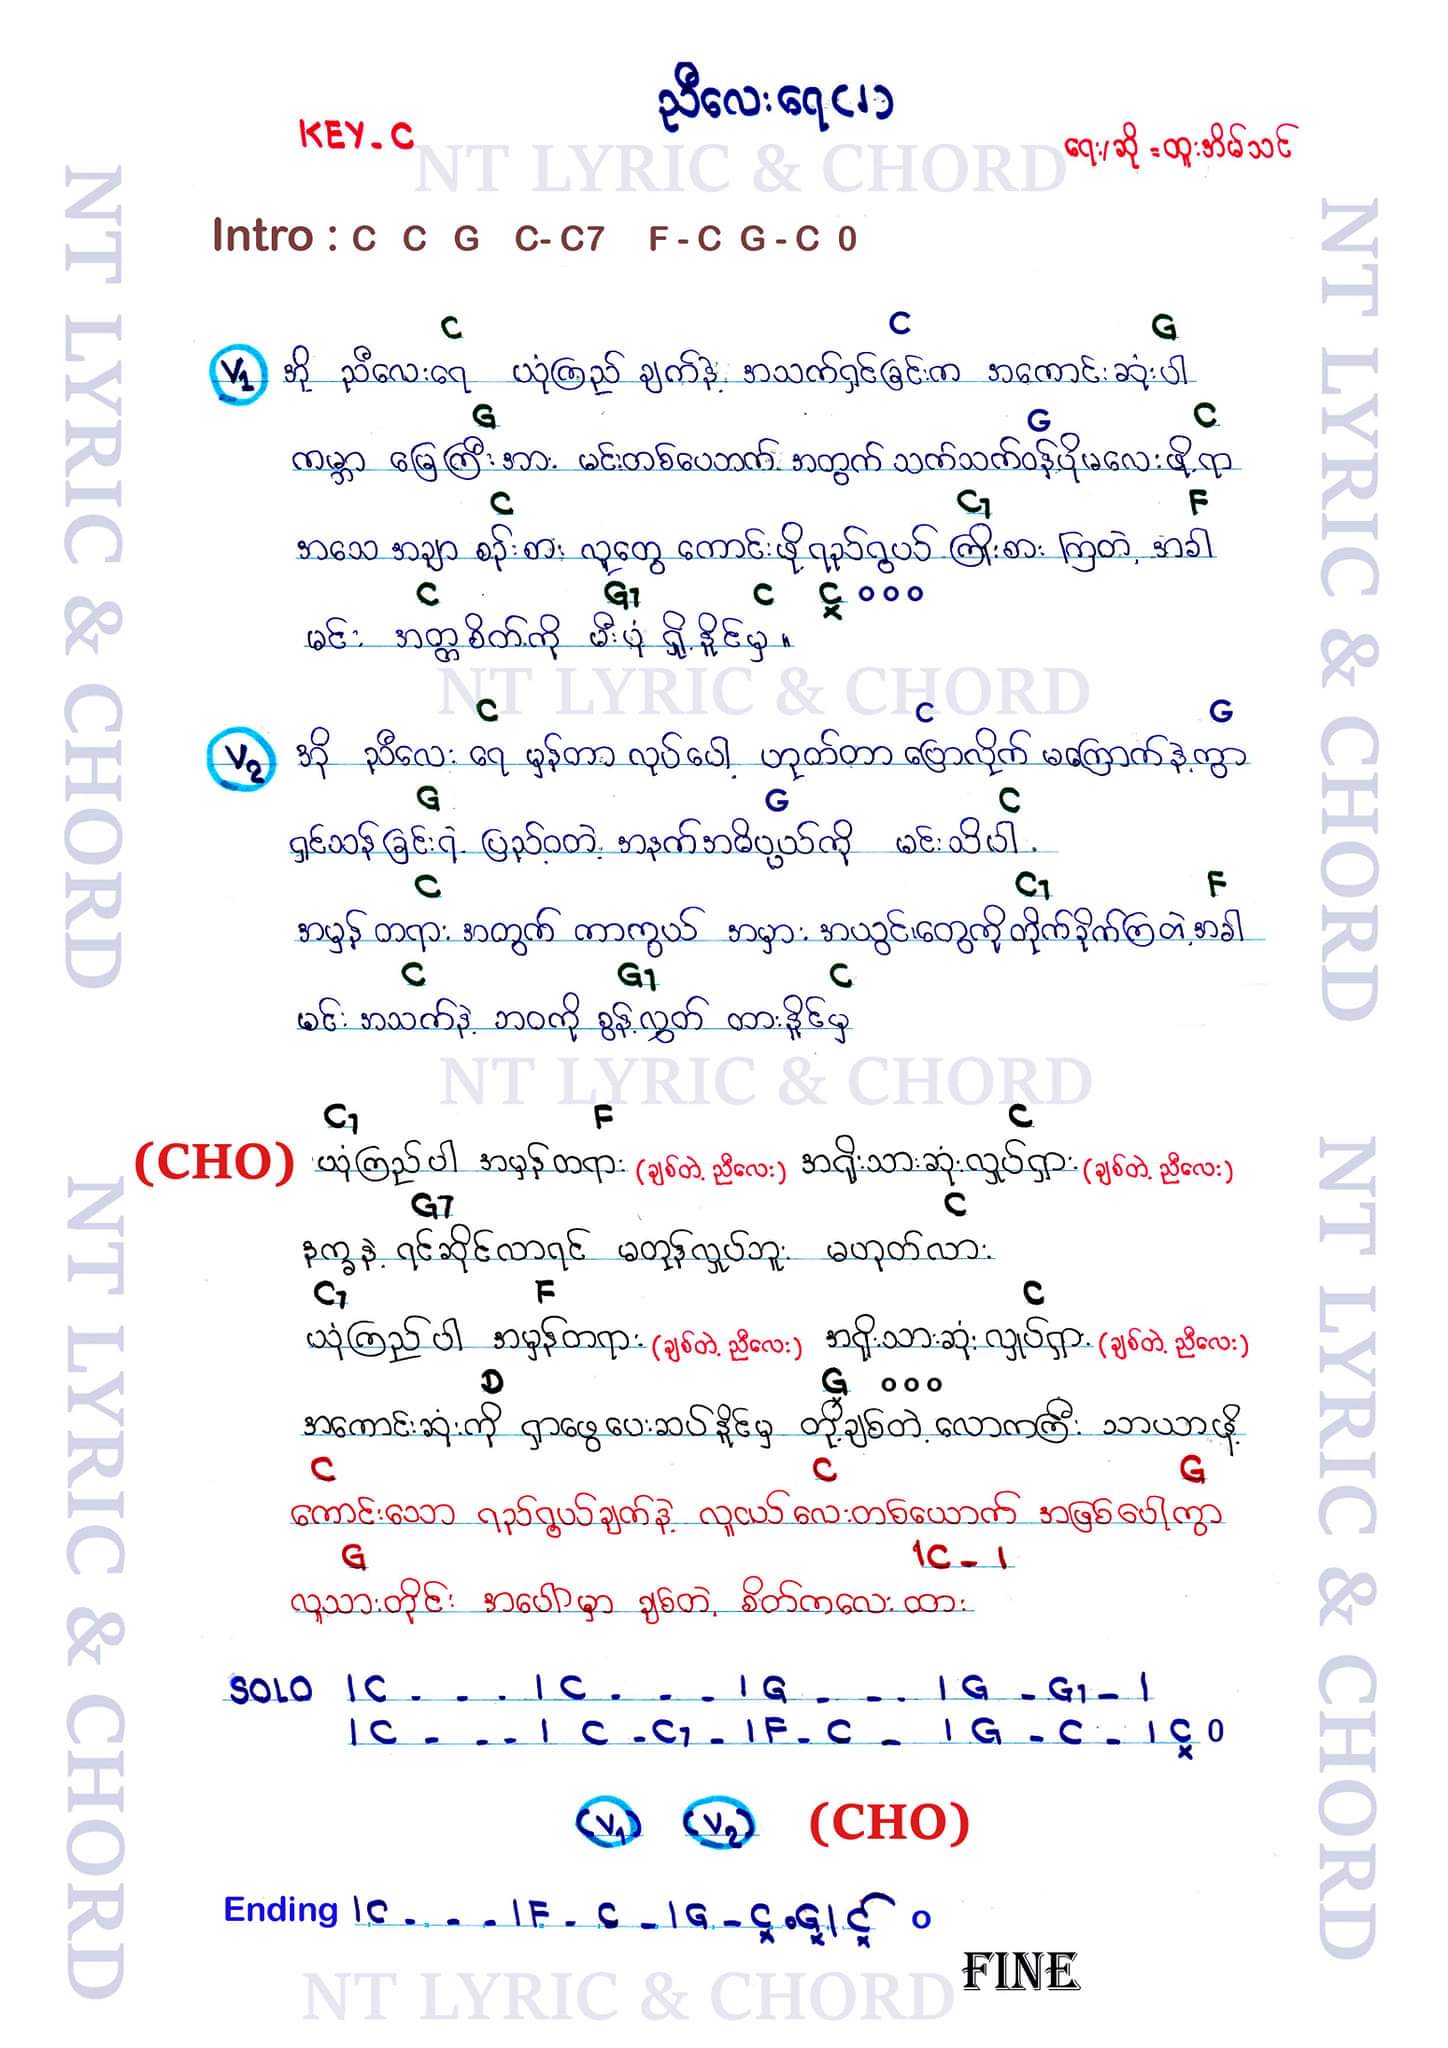 ညီလေးရေ(၂)
KEY-C
NT LYRIC & CHORD
ရေး/ဆို = ထူးအိမ်သင်
Intro : C C G C- C7 F - C G - C 0
C C G
V1 အို ညီလေးရေ ယုံကြည် ချက်နဲ့ အသက်ရှင်ခြင်းက အကောင်းဆုံးပါ
G G C
ကမ္ဘာ မြေကြီးအား မင်းတစ်ပေဘက် အတွက် သက်သက်ဝန်ပိုမလေးဖို့ရာ
C C7 F
အသေ အချာ စဉ်းစား လူတွေ ကောင်းဖို့ရည်ရွယ် ကြိုးစား ကြတဲ့ အခါ
C G7 C C ၀၀၀
မင်း အတ္တစိတ်ကို မီးပုံ ရှို့နိူင်မှ ။
NT LYRIC & CHORD
C C G
V2 အို ညီလေး ရေ မှန်တာ လုပ်ပေါ့ ဟုတ်တာ ပြောလိုက် မကြောက်နဲ့ကွာ
G G C
ရှင်သန်ခြင်းရဲ့ ပြည့်ဝတဲ့ အနက်အဓိပ္ပယ်ကို မင်းသိပါ .
C C7 F
အမှန် တရား အတွက် ကာကွယ် အမှား အယွင်းတွေကို တိုက်ခိုက်ကြတဲ့အခါ
C G7 C
မင်း အသက်နဲ့ ဘဝကို စွန့်လွှတ် ထားနိူင်မှ
NT LYRIC & CHORD
C7 F C
(CHO) ယုံကြည်ပါ အမှန်တရား (ချစ်တဲ့ ညီလေး) အရိုးသားဆုံးလှုပ်ရှား (ချစ်တဲ့ ညီလေး)
G7 C
နက္ခနဲ့ ရင်ဆိုင်လာရင် မတုန်လှုပ်ဘူး မဟုတ်လား
C7 F C
ယုံကြည်ပါ အမှန်တရား (ချစ်တဲ့ ညီလေး) အရိုးသားဆုံး လှုပ်ရှား (ချစ်တဲ့ ညီလေး)
D G ၀၀၀
အကောင်းဆုံးကို ရှာဖွေပေးဆပ်နိူင်မှ တို့ချစ်တဲ့ လောကကြီး သာယာဖို့
C C G
ကောင်းသော ရည်ရွယ်ချက်နဲ့ လူငယ်လေးတစ်ယောက် အဖြစ်ပေါ့ကွာ
G 1C - 1
လူသားတိုင်း အပေါ်မှာ ချစ်တဲ့ စိတ်ကလေးထား
SOLO | C - - - | C - - - | G - - - | G - G7 - |
| C - - - | C - C7 - | F - C - | G - C - | C 0
(V1) (V2) (CHO)
Ending | C - - - | F - C - | G - C • G | C 0
FINE
NT LYRIC & CHORD
NT LYRIC & CHORD
NT LYRIC & CHORD
NT LYRIC & CHORD
NT LYRIC & CHORD